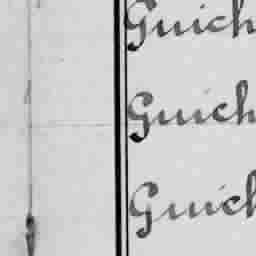 Guich
Guich
Guich